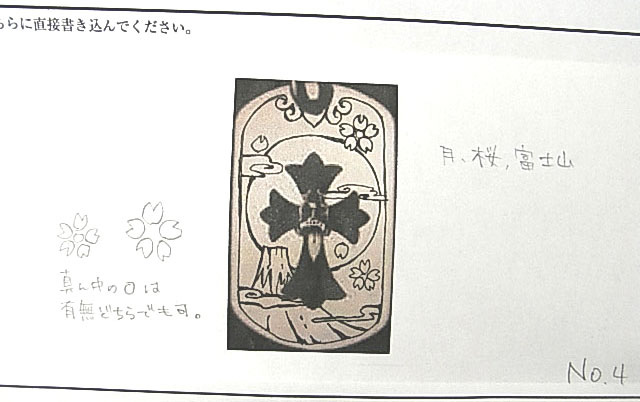 ちらに直接書き込んでください。
月、桜,富士山
真ん中の○は
有無どちらでも可。
No.4